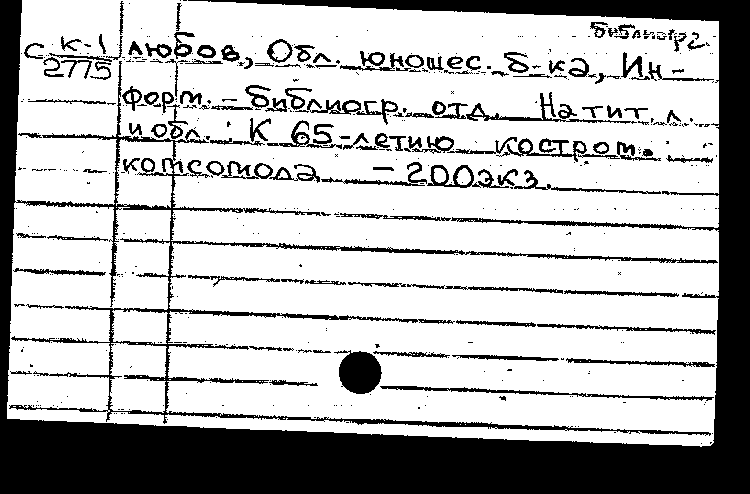 библиогр 2
С К-1 любов, Обл. юношес. б-ка, Ин-
2775
форм. - библиогр. отд. На тит. л.
и обл.: К 65-летию костром.
комсомола - 200экз.